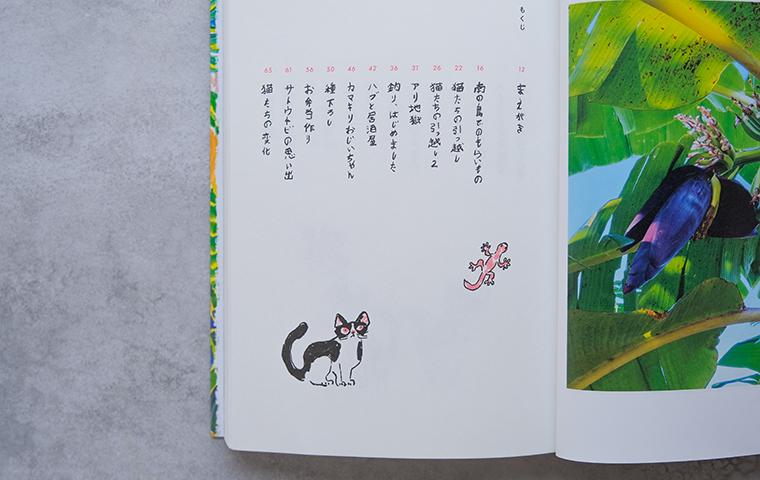 もくじ
12 まえがき
16 南の島でのもらいもの
22 猫たちの引っ越し
26 猫たちの引っ越し2
31 アリ地獄
36 釣り、はじめました
42 ハブと居酒屋
46 カマキリおじいちゃん
50 種下ろし
56 お弁当作り
61 サトウキビの思い出
65 猫たちの変化